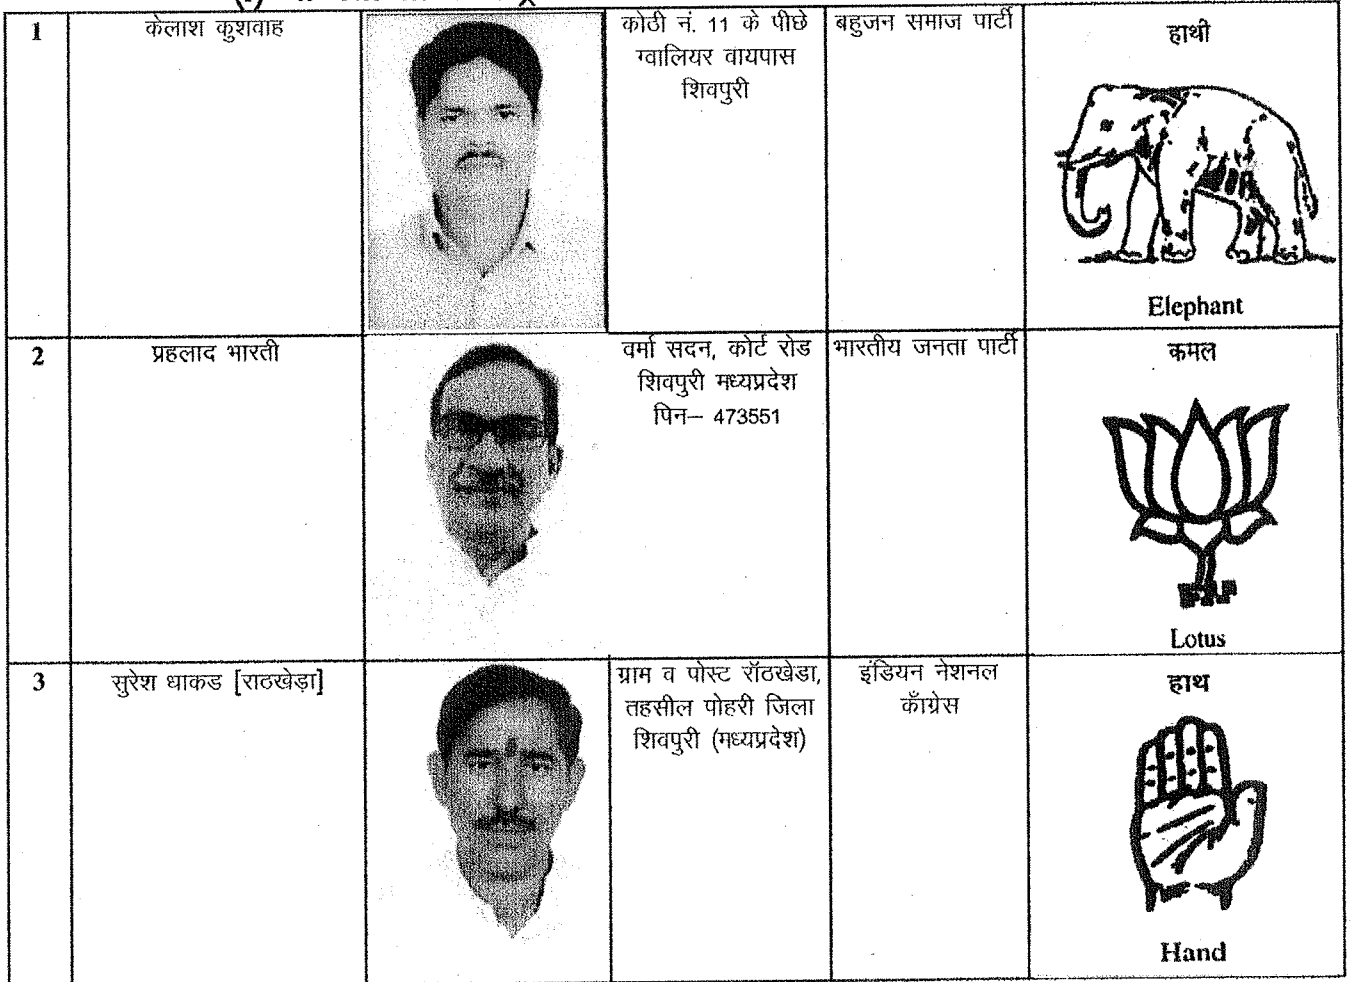 1
कैलाश कुशवाह
कोठी नं. 11 के पीछे
ग्वालियर वायपास
शिवपुरी
बहुजन समाज पार्टी
हाथी
Elephant
2
प्रहलाद भारती
वर्मा सदन, कोर्ट रोड
शिवपुरी मध्यप्रदेश
पिन– 473551
भारतीय जनता पार्टी
कमल
Lotus
3
सुरेश धाकड [राठखेड़ा]
ग्राम व पोस्ट रॉठखेडा,
तहसील पोहरी जिला
शिवपुरी (मध्यप्रदेश)
इंडियन नेशनल
कॉंग्रेस
हाथ
Hand